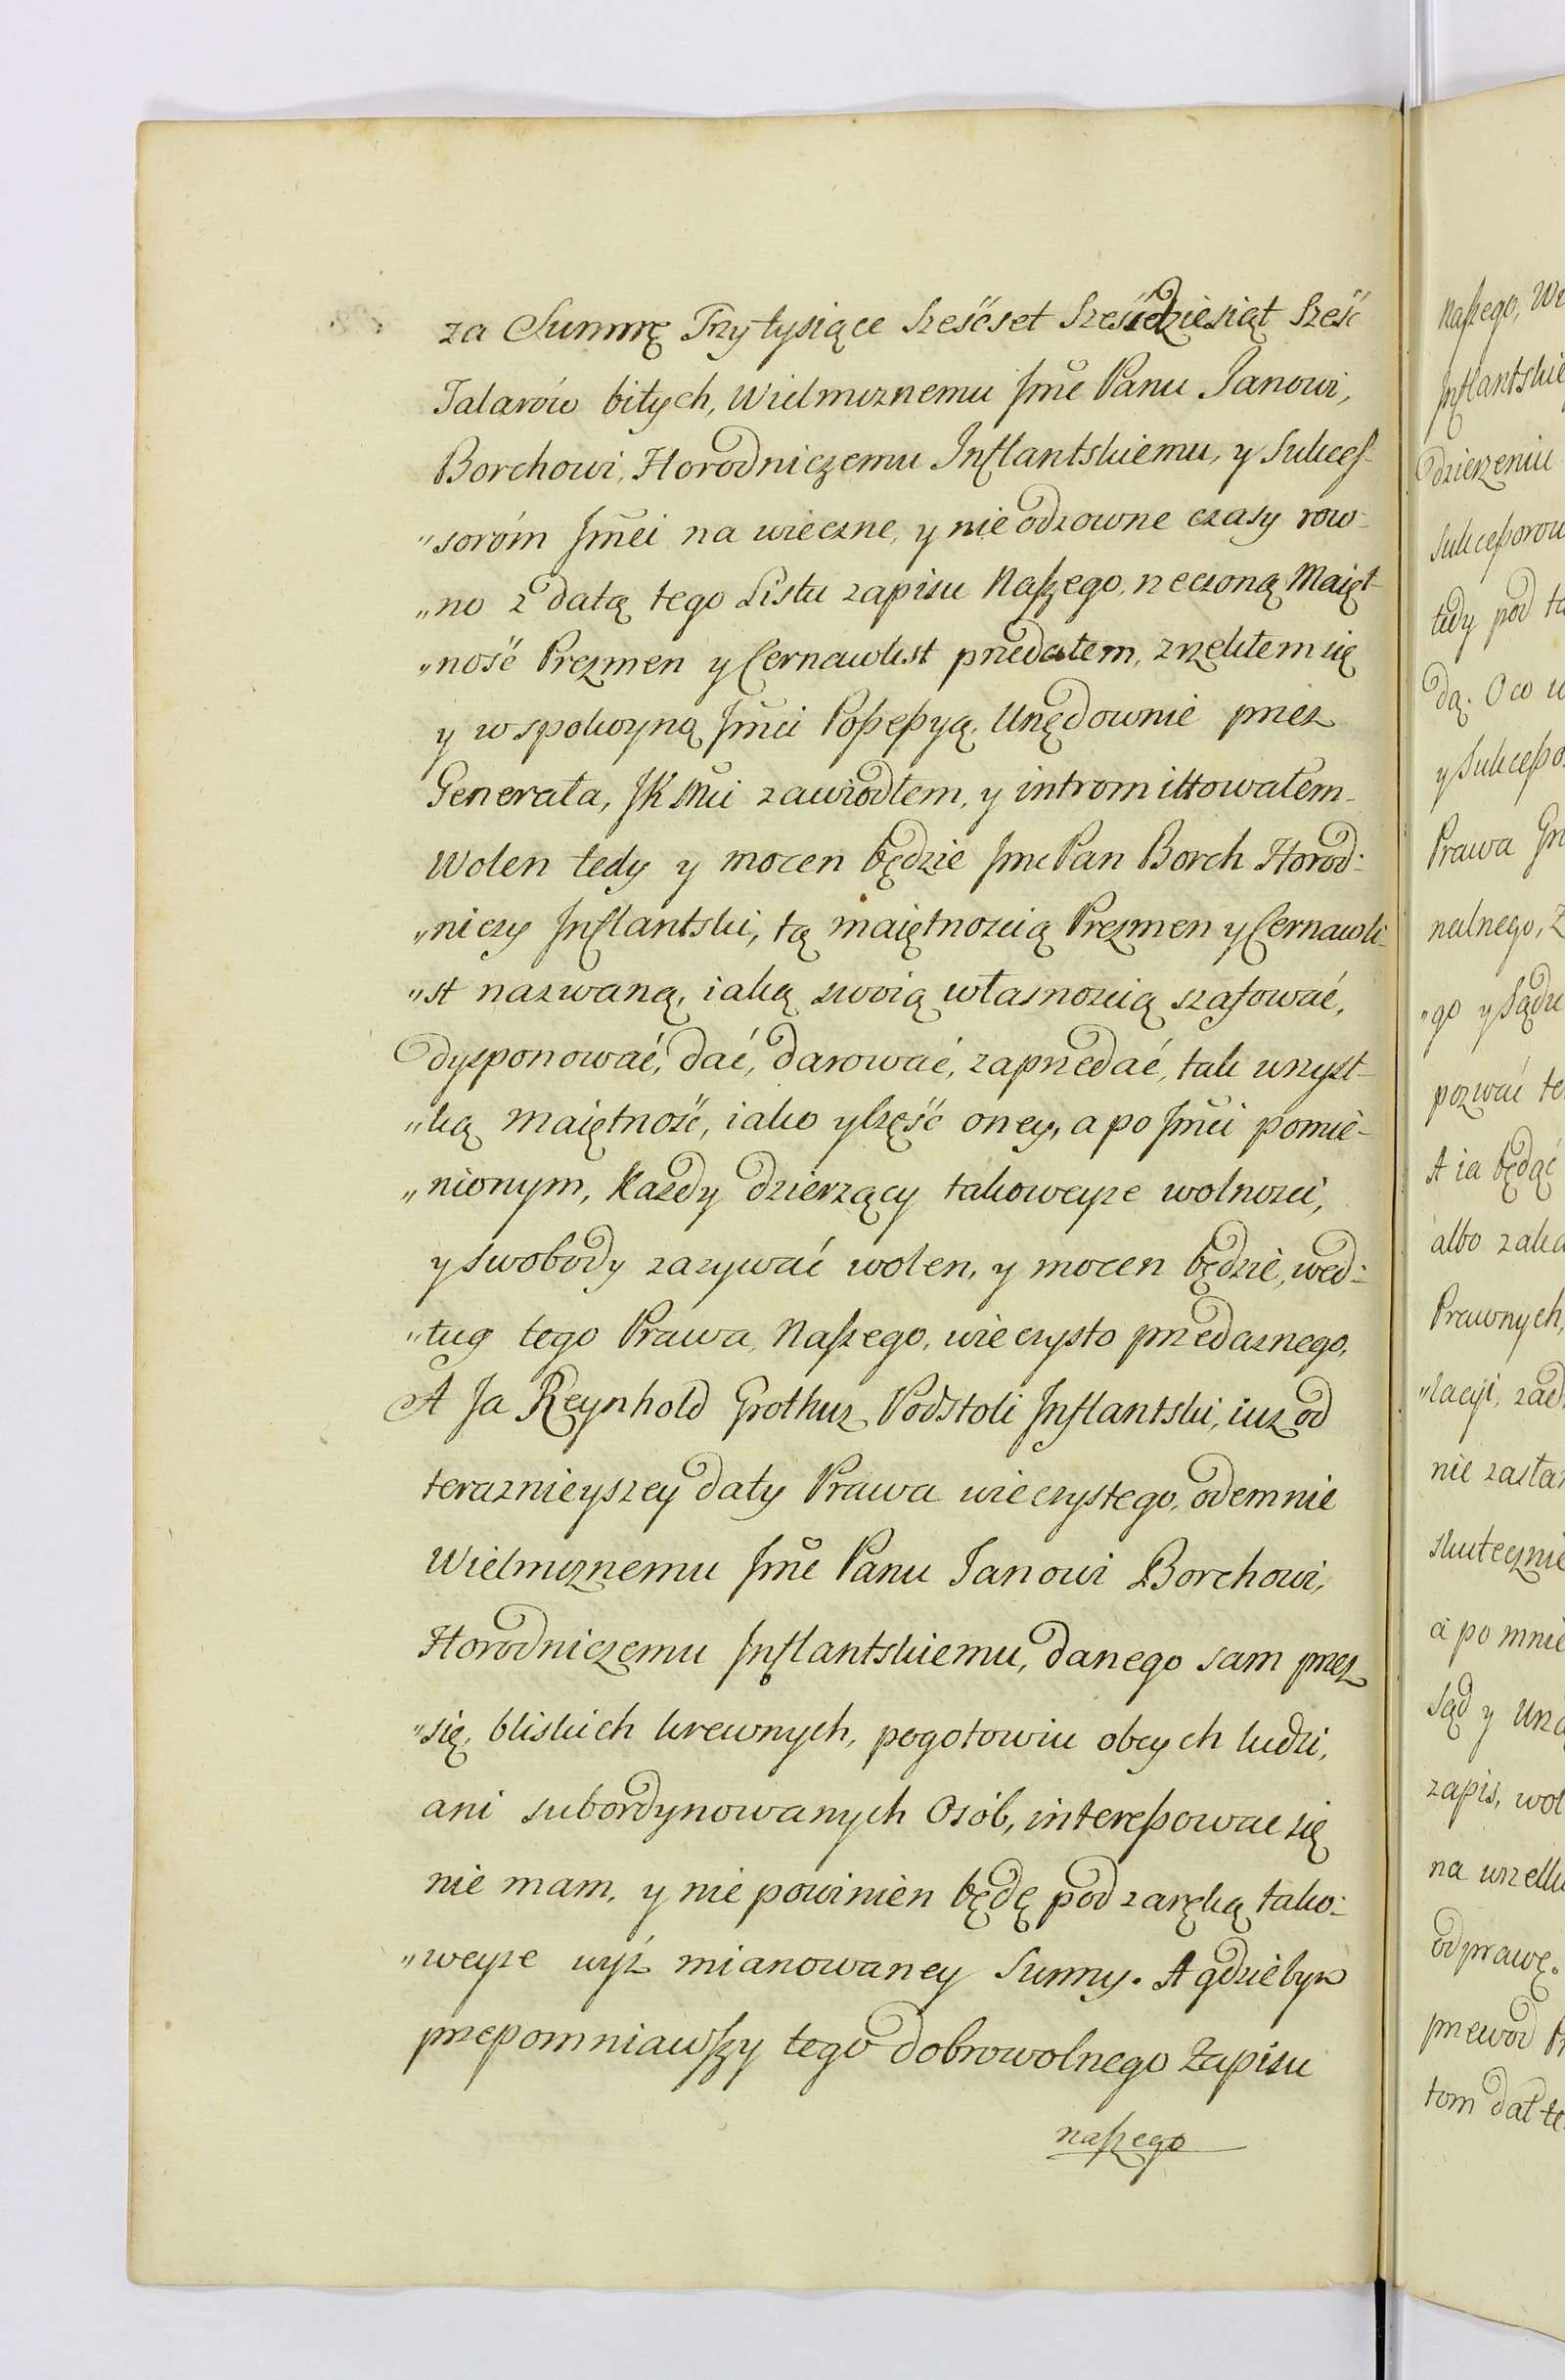 za Summę Trzy tysiące Sześćset Sześćdziesiąt Sześć
Talarów bitych, Wielmoznemu Jmć Panu Janowi,
Borchowi, Horodniczemu Inflantskiemu, y Sukces-
"sorom Jmći na wieczne, y nieodzowne czasy row-
"no z datą tego Listu zapisu Naszego, rzeczoną Maięt-
"ność Prezmen y Cernawkst przedałem, zrzekłem się
y w spokoyną Jmći Possessyą, Urzędownie przez
Generała, JK Mći zawiodłem, y intromittowałem.
Wolen tedy y mocen będzie Jmć Pan Borch Horod:
"niczy Inflantski, tą maiętnoscią Prezmen y Cernawk-
"st nazwaną, iaką swoią własnoscią szafować,
dysponować, dać, darować, zaprzedać, tak wszyst-
"ką maiętność, iako y część oney, a po Jmći pomie-
"nionym, Kazdy dzierzący takoweysze wolnosci,
y Swobody zazywać wolen, y mocen będzie, wed:
"ług tego Prawa, Naszego, wieczysto przedaznego,
A Ja Reynhold Grothuz Podstoli Inflantski, iuz od
teraznieyszey daty Prawa wieczystego, odemnie
Wielmoznemu Jmć Panu Janowi Borchowi,
Horodniczemu Inflantskiemu, danego sam przez
"się, bliskich krewnych, pogotowiu obcych ludzi,
ani subordynowanych Osób, interessowac się
nie mam, y nie powinien będę pod zaręką tako:
"weysze wyż mianowaney Summy. A gdziebym
przepomniawszy tego dobrowolnego Zapisu
naszego
naszego,
Inflantskie
dzierzeniu
Sukcessorow
tedy pod
dą. O co
y Sukcesso
Prawa
nalnego,
"go y Sądu
pozwać
A ia będąc
albo
Prawnych,
"lacyi,
nie
skutecznie
a po mnie
Sąd y
zapis,
na
odprawę.
przewod
tom dał